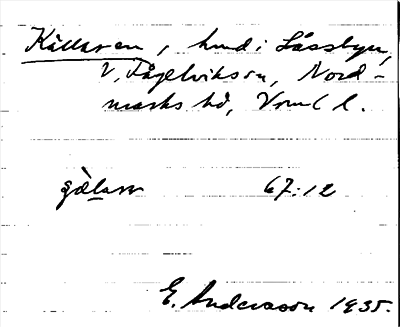 Källaren, hmd i Låssbyn,
V. Fågelvikssn, Nord-
marks hd, Vrml l.
gälarn 67:12
E. Andersson 1935.